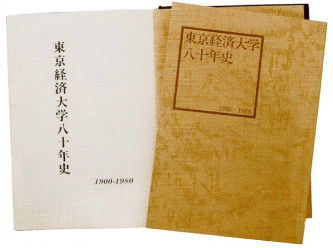 東京経済大学八十年史
1900-1980
東京経済大学
八十年史
1900-1980